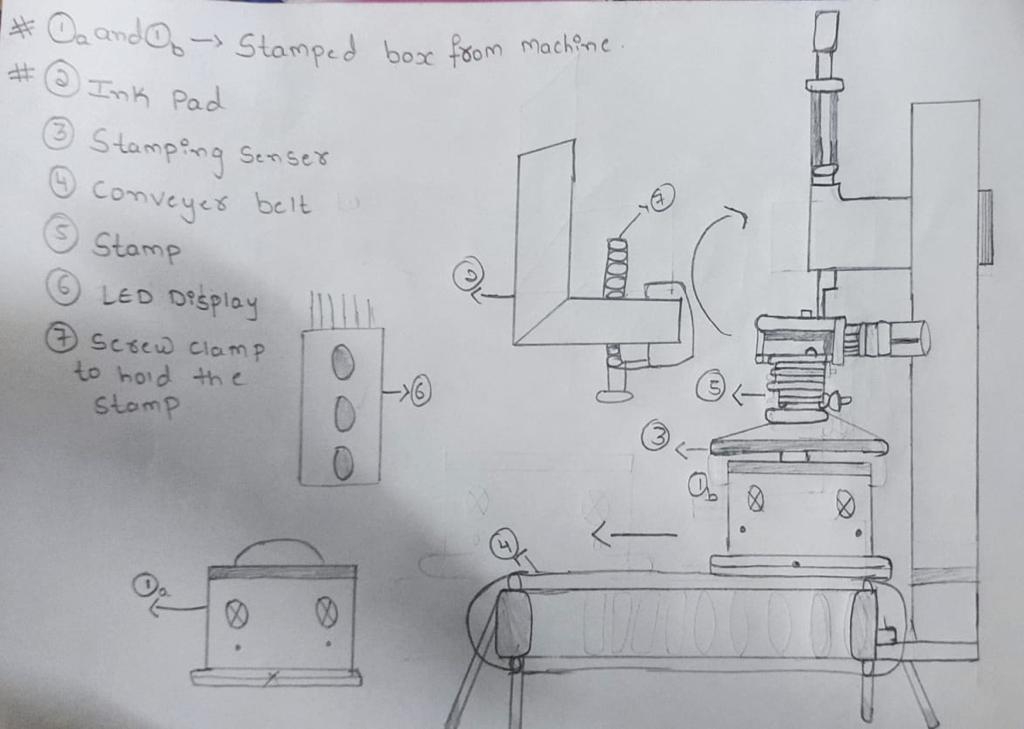 # ①a and ①b → Stamped box from machine.
# ② Ink Pad
③ Stamping Senser
④ Conveyer belt
⑤ Stamp
⑥ LED Display
⑦ Screw clamp
to hold the
Stamp
⑦
②
⑤
⑥
③
①b
④
①a